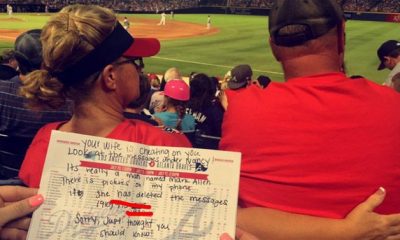 Your wife is cheating on you
Look at the messages under Nancy
Its really a man named Mark Allen
There is pictures on my phone
if she has deleted the messages
Sorry, Just thought you
should know!